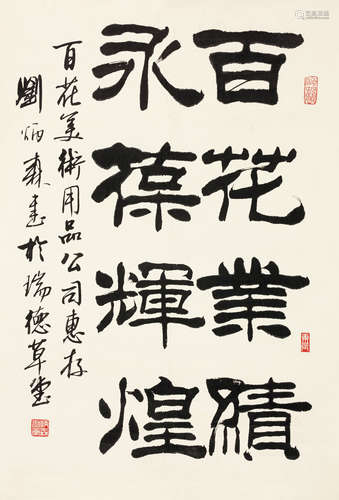 百花業績
永葆輝煌
百花美術用品公司惠存
劉炳森書於瑞德草堂